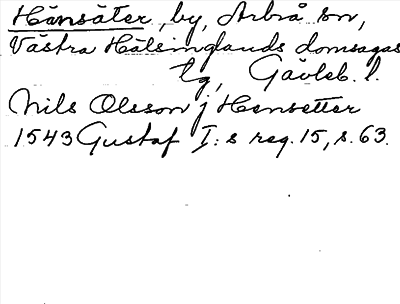 Hänsäter, by, Arbrå sn,
Västra Hälsinglands domsagas
tg, Gävleb. l.
Nils Olsson j Hensetter
1543 Gustaf I:s reg. 15, s. 63.